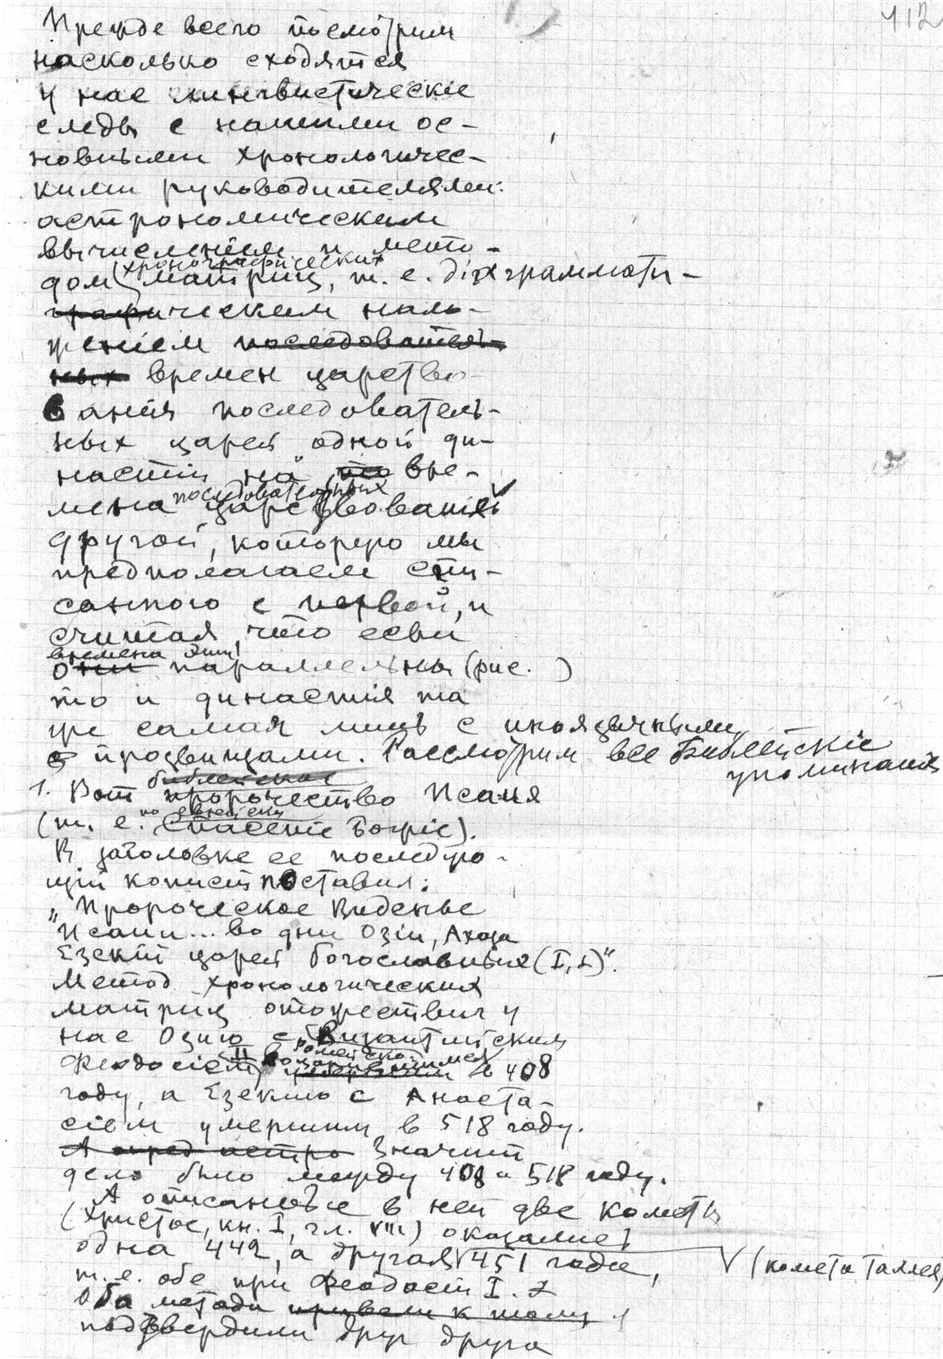 412
Прежде всего посмотрим
насколько сходятся
у нас лингвистическіе
следы с нашими ос-
новными хронологичес-
кими руководителями:
астрономическим
вычисленіем и мето-
хронографических
дом матриц, т. е. діаграммати-
графическим нало-
женіем последователь
ных времен царство-
ванія последователь-
ных царей одной ди-
настіи на вре-
последовательных
мена царствованій
другой, которую мы
предполагаем спи-
санною с первой, и
считая, что если
времена эти
они параллельны (рис. )
то и династія та
же самая лишь с иноязычными
прозвищами. Рассмотрим все Библейскіе
упоминанія
библейское
1. Вот пророчество Исаія
по еврейски
(т. е. Спасеніе Божіе).
В заголовке ее последую-
щій копист поставил:
„Пророческое Виденье
Исаіи... во дни Озіи, Ахаза
Езекіи царей богославныя (I, 1)".
Метод хронологических
матриц отожествил у
нас Озію с Византійским
Феодосіем II воцарившимся в 408
году, а Езекію с Анаста-
сіем умершим в 518 году.
Значит
дело было между 408 и 518 году.
А описанные в ней две кометы
(Христос, кн. I, гл. VIII) оказались
одна 442, а другая 451 года, V (комета Галлея)
т. е. обе при Феодосіи I.
Оба методы привели к тому
подтвердили друг друга